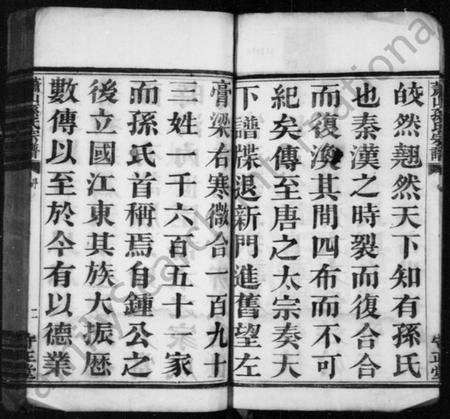 皎然翹然天下知有孫氏
也秦漢之時裂而復合合
而復渙其間四布而不可
紀矣傳至唐之太宗奏天
下譜牒退新門進舊望左
膏梁右寒微合一百九十
三姓一千六百五十一家
而孫氏首稱焉自鍾公之
後立國江東其族大振歷
數傳以至於今有以德業
蕭山孫氏宗譜
二
守正堂